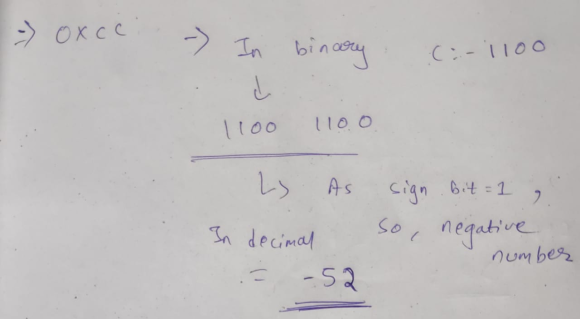 => 0xCC -> In binary C:- 1100
↓
1100 1100
↳ As sign bit = 1,
so, negative number
In decimal
= -52